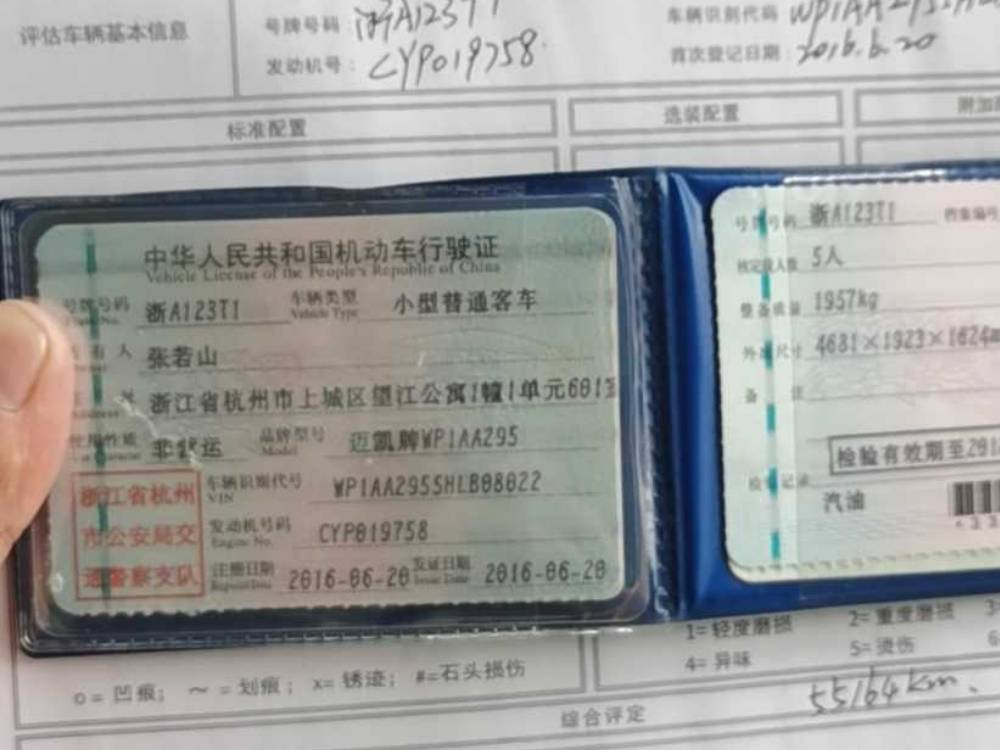 评估车辆基本信息
号牌号码: 浙A123T1
车辆识别代码
发动机号: CYP019758
首次登记日期: 2016.6.20
标准配置
选装配置
附加
中华人民共和国机动车行驶证
Vehicle License of the People's Republic of China
号牌号码 浙A123T1 车辆类型 小型普通客车
Plate No. Vehicle Type
有人 张若山
浙江省杭州市上城区望江公寓1幢1单元601室
使用性质 非营运 品牌型号 迈凯牌WP1AA295
Model
车辆识别代号 WP1AA2955HLB08022
VIN
浙江省杭州
市公安局交
通警察支队
发动机号码 CYP019758
Engine No.
注册日期 2016-06-20 发证日期 2016-06-20
Issue Date
号牌号码 浙A123T1 档案编号
核定载人数 5人
整备质量 1957kg
外廓尺寸 4681×1923×1624m
备注
检验有效期至201
检验记录
汽油
1=轻度磨损 2=重度磨损 3
4=异味 5=烫伤 6
o=凹痕; ～=划痕; x=锈迹; #=石头损伤
综合评定
55164km.